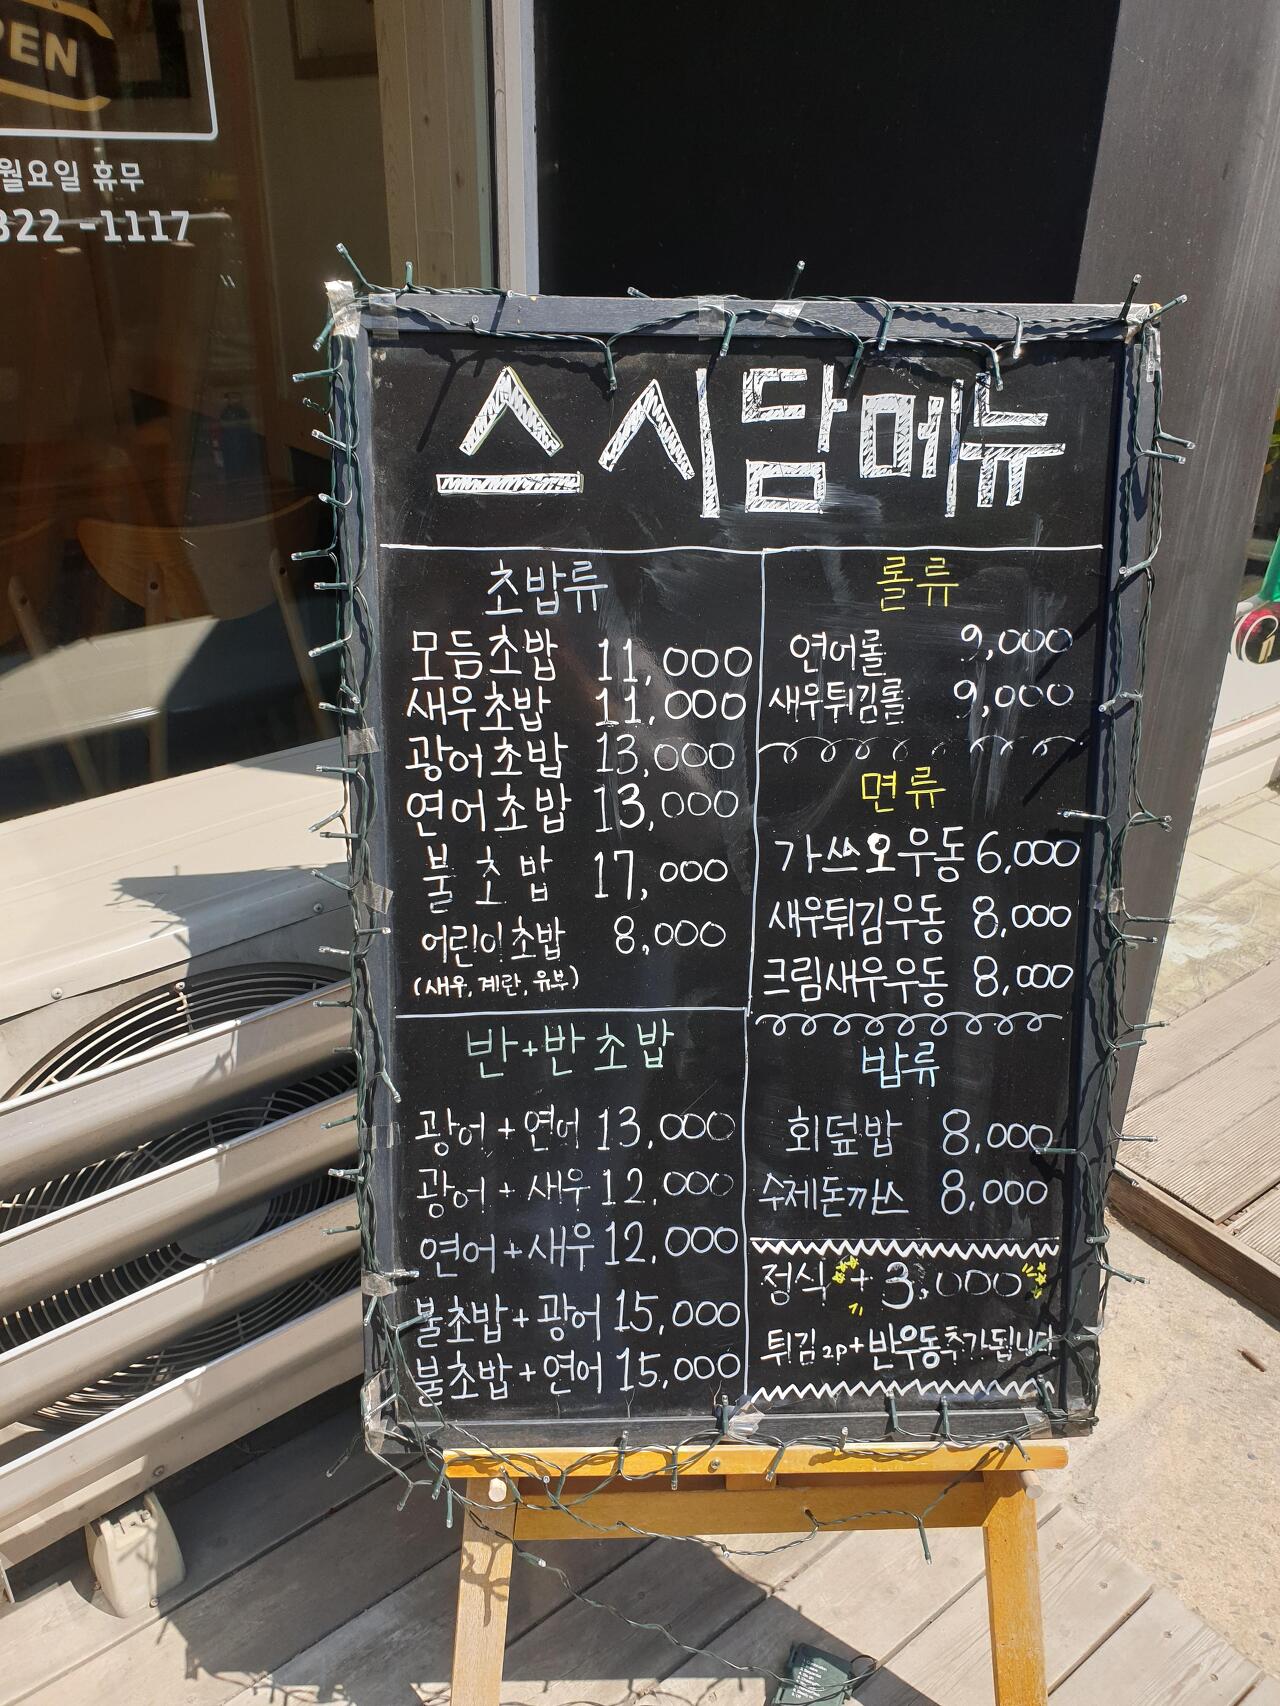 PEN
월요일 휴무
322 -1117
스시담메뉴
초밥류
모듬초밥 11,000
새우초밥 11,000
광어초밥 13,000
연어초밥 13,000
불초밥 17,000
어린이초밥 8,000
(새우, 계란, 유부)
반+반초밥
광어+연어 13,000
광어+새우 12,000
연어+새우 12,000
불초밥+광어 15,000
불초밥+연어 15,000
롤류
연어롤 9,000
새우튀김롤 9,000
면류
가쓰오우동 6,000
새우튀김우동 8,000
크림새우우동 8,000
밥류
회덮밥 8,000
수제돈까스 8,000
정식 + 3,000
튀김 2p+반우동추가됩니다